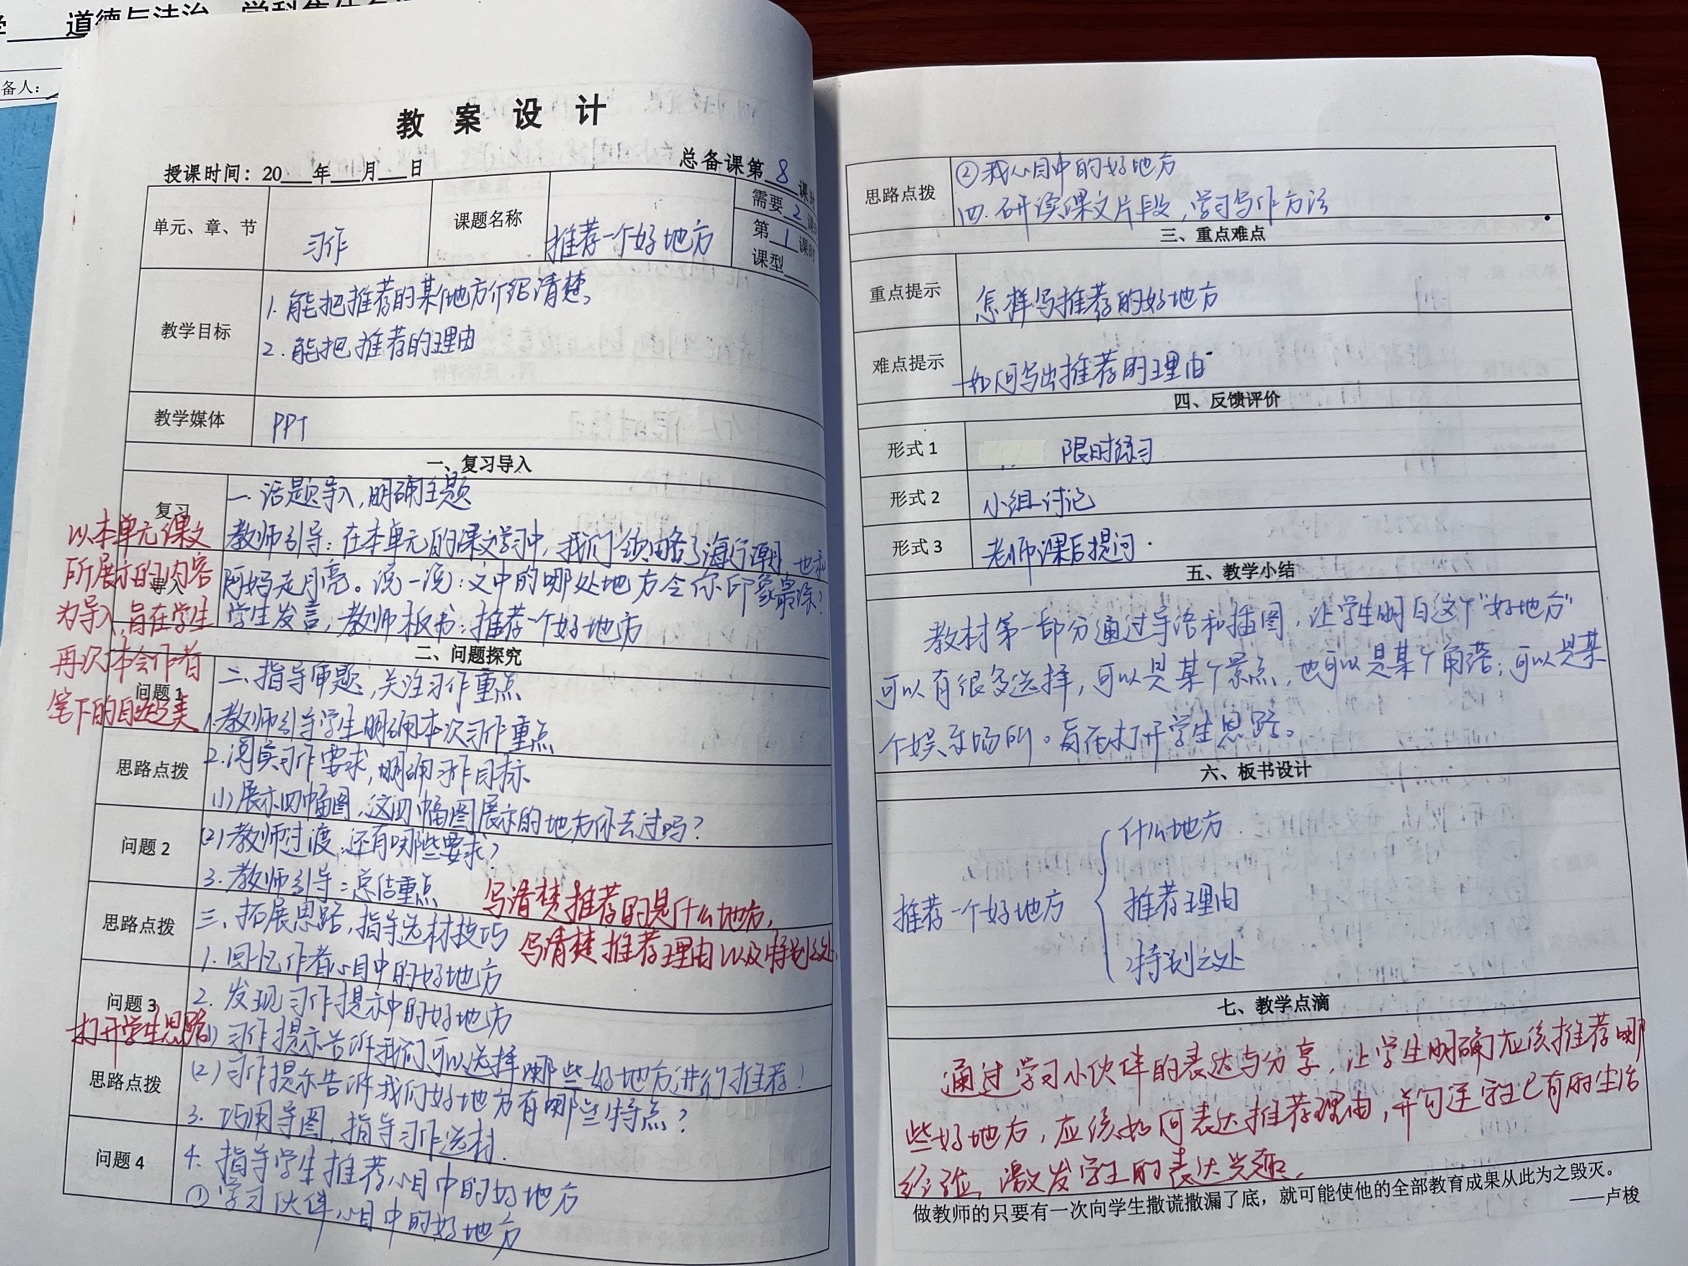 学 道德与法治 学科集体备
备人：
教 案 设 计
授课时间：20 年 月 日
总备课第 8 课时
单元、章、节
习作
课题名称
推荐一个好地方
需要 2 课时
第 1 课时
课型
教学目标
1. 能把推荐的某个地方介绍清楚。
2. 能把推荐的理由
教学媒体
PPT
一、复习导入
复习
导入
一. 话题导入，明确主题
教师引导：在本单元的课文学习中，我们领略了海行潮，也和
阿妈走月亮。说一说：文中的哪处地方令你印象最深？
学生发言，教师板书：推荐一个好地方
以本单元课文
所展示的内容
为导入，旨在学生
再次体会作者
笔下的自然之美
二、问题探究
问题 1
二. 指导审题，关注习作重点
1. 教师引导学生明确本次习作重点
思路点拨
2. 阅读习作要求，明确习作目标
(1) 展示四幅图，这四幅图展示的地方你去过吗？
问题 2
(2) 教师过渡：还有哪些要求？
3. 教师引导：总结重点
写清楚推荐的是什么地方，
写清楚推荐理由以及特别之处
思路点拨
三. 拓展思路，指导选材技巧
1. 回忆作者心目中的好地方
问题 3
2. 发现习作提示中的好地方
打开学生思路
(1) 习作提示告诉我们可以选择哪些好地方进行推荐？
思路点拨
(2) 习作提示告诉我们好地方有哪些特点？
3. 巧用导图，指导习作选材.
问题 4
4. 指导学生推荐心目中的好地方
① 学习伙伴心目中的好地方
思路点拨
② 我心目中的好地方
四. 研读课文片段，学习写作方法
三、重点难点
重点提示
怎样写推荐的好地方
难点提示
如何写出推荐的理由
四、反馈评价
形式 1
限时练习
形式 2
小组讨论
形式 3
老师课后提问
五、教学小结
教材第一部分通过导语和插图，让学生明白这个“好地方”
可以有很多选择，可以是某个景点，也可以是某个角落；可以是某
个娱乐场所。旨在打开学生思路。
六、板书设计
推荐一个好地方
什么地方
推荐理由
特别之处
七、教学点滴
通过学习小伙伴的表达与分享，让学生明确应该推荐哪
些好地方，应该如何表达推荐理由，并勾连学生已有的生活
经验，激发学生的表达兴趣。
做教师的只要有一次向学生撒谎撒漏了底，就可能使他的全部教育成果从此为之毁灭。
——卢梭